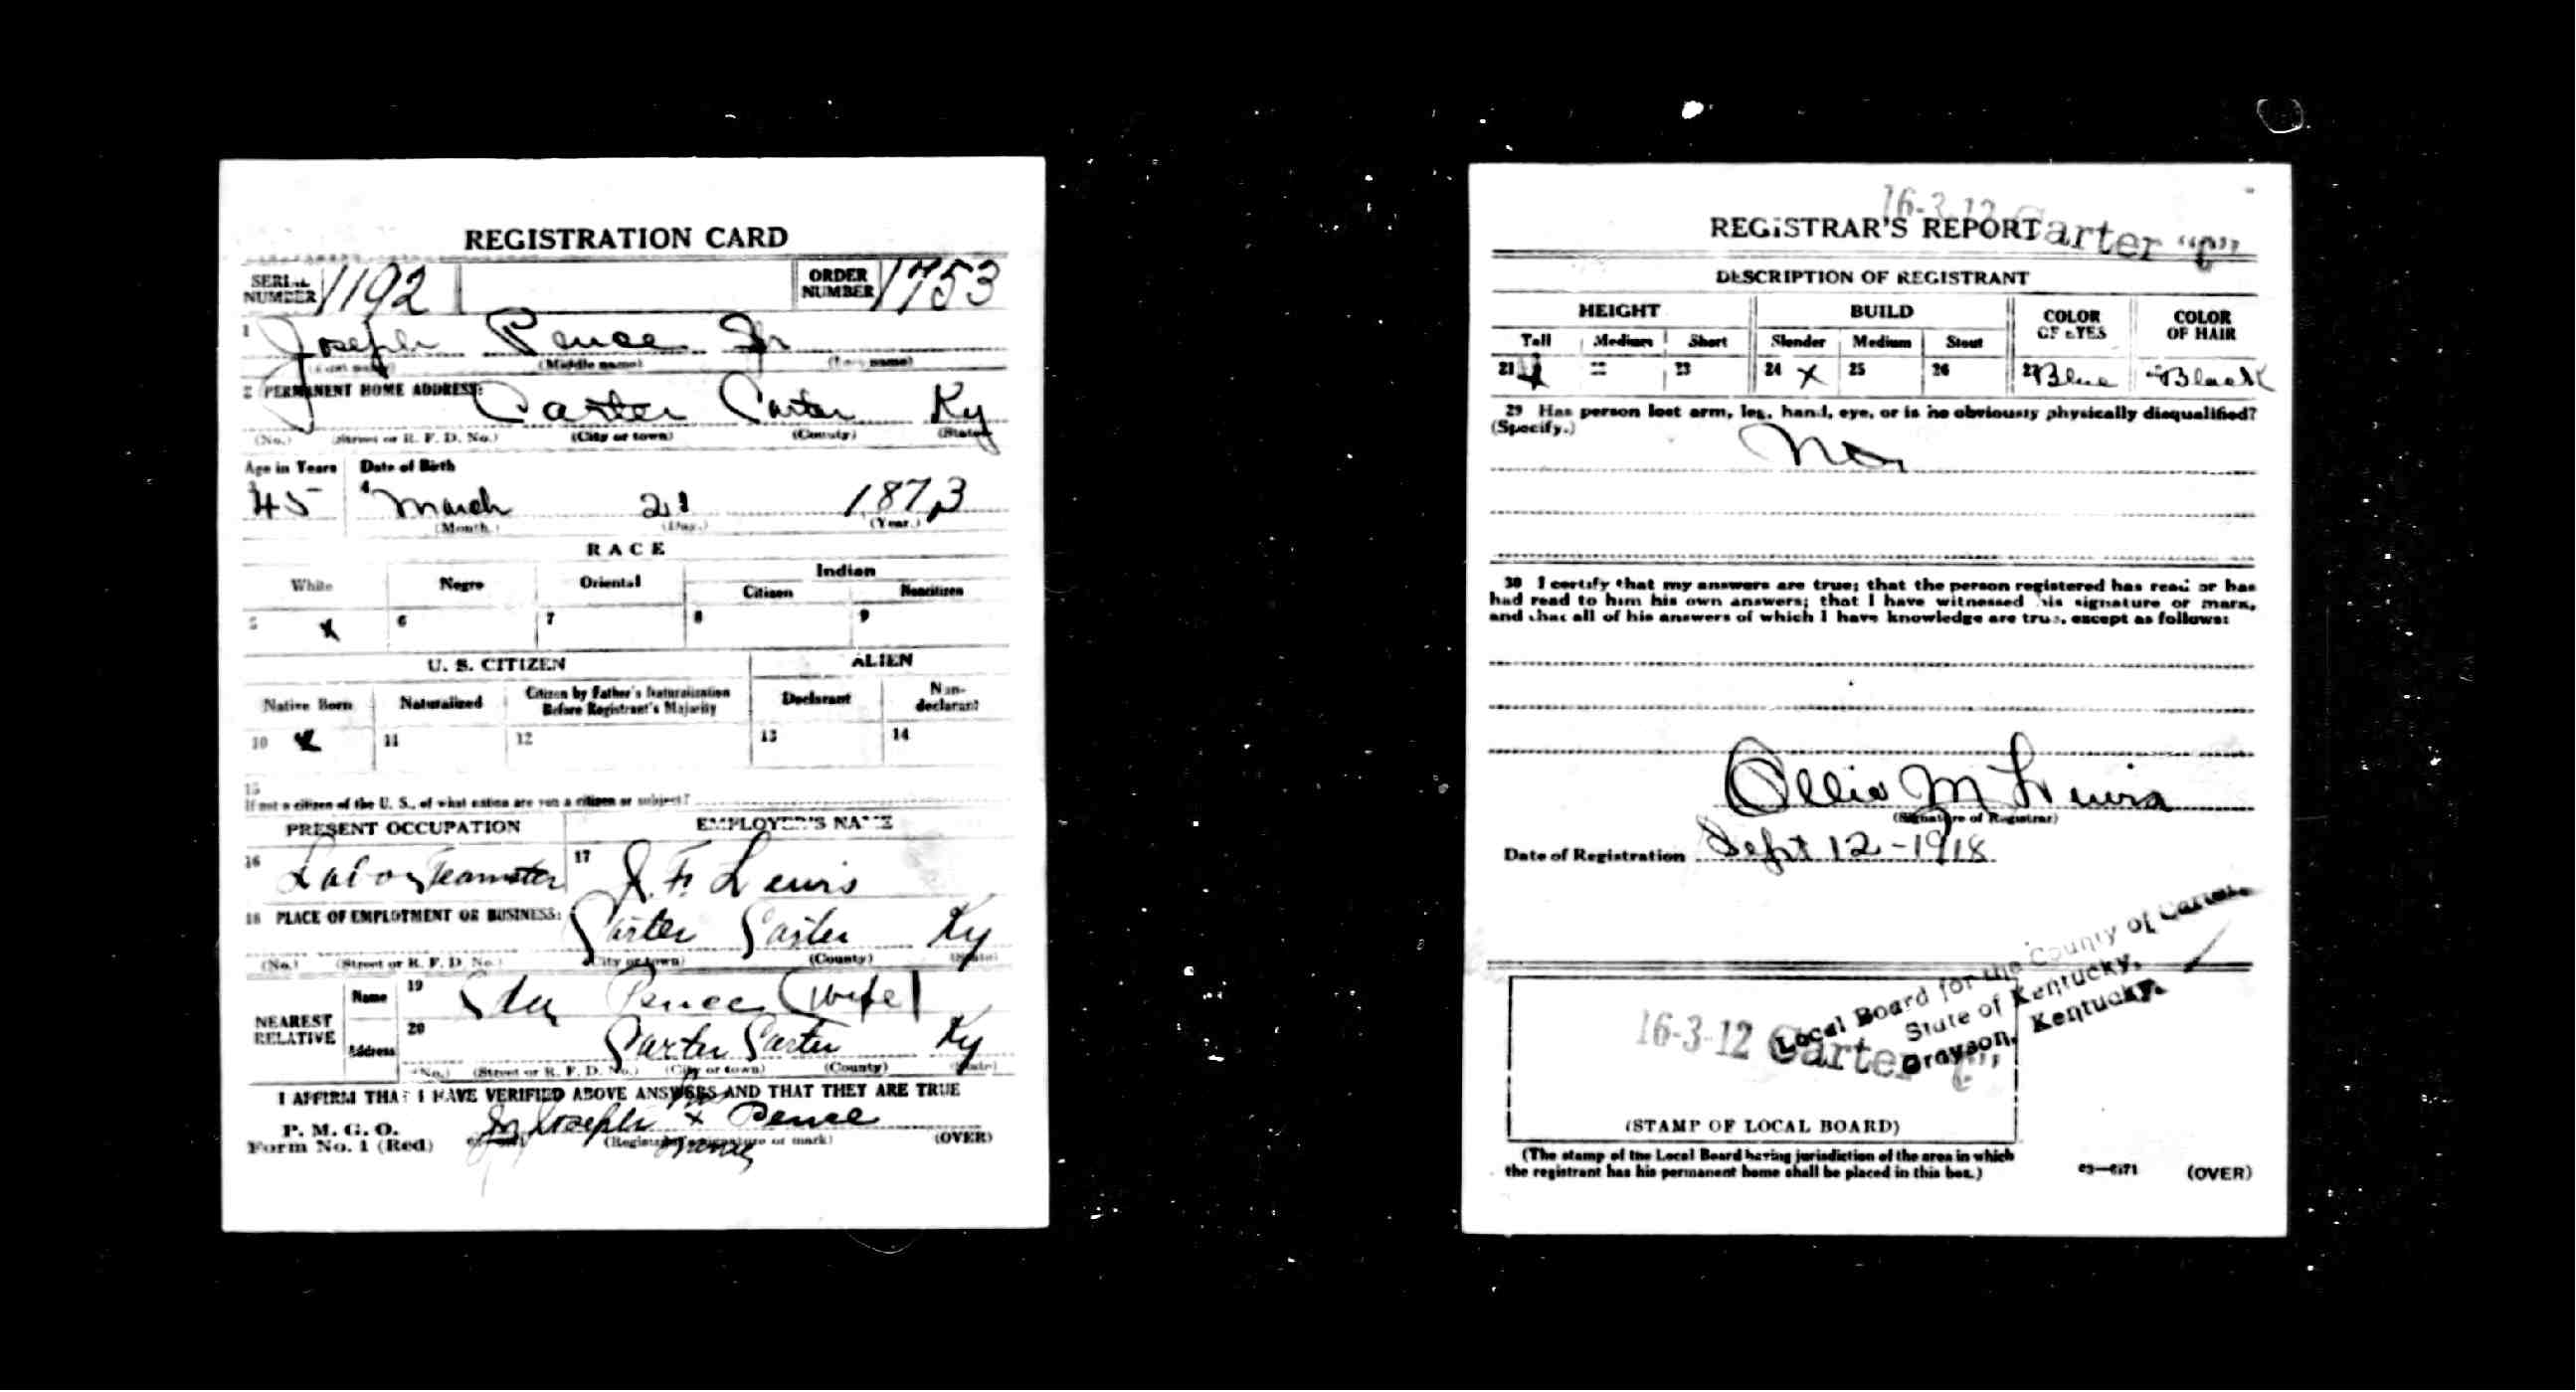 REGISTRATION CARD
SERIAL NUMBER 1192 ORDER NUMBER 1753
1 Joseph Pence Jr
(First name) (Middle name) (Last name)
2 PERMANENT HOME ADDRESS:
Carter Carter Ky
(No.) (Street or R. F. D. No.) (City or town) (County) (State)
Age in Years Date of Birth
3 45 4 March 21 1873
(Month.) (Day.) (Year.)
RACE
White Negro Oriental Indian
Citizen Noncitizen
5 X 6 7 8 9
U. S. CITIZEN ALIEN
Native Born Naturalized Citizen by Father's Naturalization Before Registrant's Majority Declarant Non-declarant
10 X 11 12 13 14
15
If not a citizen of the U. S., of what nation are you a citizen or subject?
PRESENT OCCUPATION EMPLOYER'S NAME
16 Labor Teamster 17 J. F. Lewis
18 PLACE OF EMPLOYMENT OR BUSINESS:
Carter Carter Ky
(No.) (Street or R. F. D. No.) (City or town) (County) (State)
NEAREST RELATIVE
Name 19 Pence (wife)
Address 20 Carter Carter Ky
(No.) (Street or R. F. D. No.) (City or town) (County) (State)
I AFFIRM THAT I HAVE VERIFIED ABOVE ANSWERS AND THAT THEY ARE TRUE
P. M. G. O.
Form No. 1 (Red) Joseph X Pence
(Registrant's signature or mark) (OVER)
16-3-12 Carter "C"
REGISTRAR'S REPORT
DESCRIPTION OF REGISTRANT
HEIGHT BUILD COLOR OF EYES COLOR OF HAIR
Tall Medium Short Slender Medium Stout
21 X 22 23 24 X 25 26 27 Blue 28 Black
29 Has person lost arm, leg, hand, eye, or is he obviously physically disqualified?
(Specify.) No
30 I certify that my answers are true; that the person registered has read or has
had read to him his own answers; that I have witnessed his signature or mark,
and that all of his answers of which I have knowledge are true, except as follows:
Ollie M Lewis
(Signature of Registrar)
Date of Registration Sept 12-1918
Local Board for the County of Carter
State of Kentucky,
Grayson, Kentucky.
16-3-12 Carter "C"
(STAMP OF LOCAL BOARD)
(The stamp of the Local Board having jurisdiction of the area in which
the registrant has his permanent home shall be placed in this box.)
03—6171 (OVER)